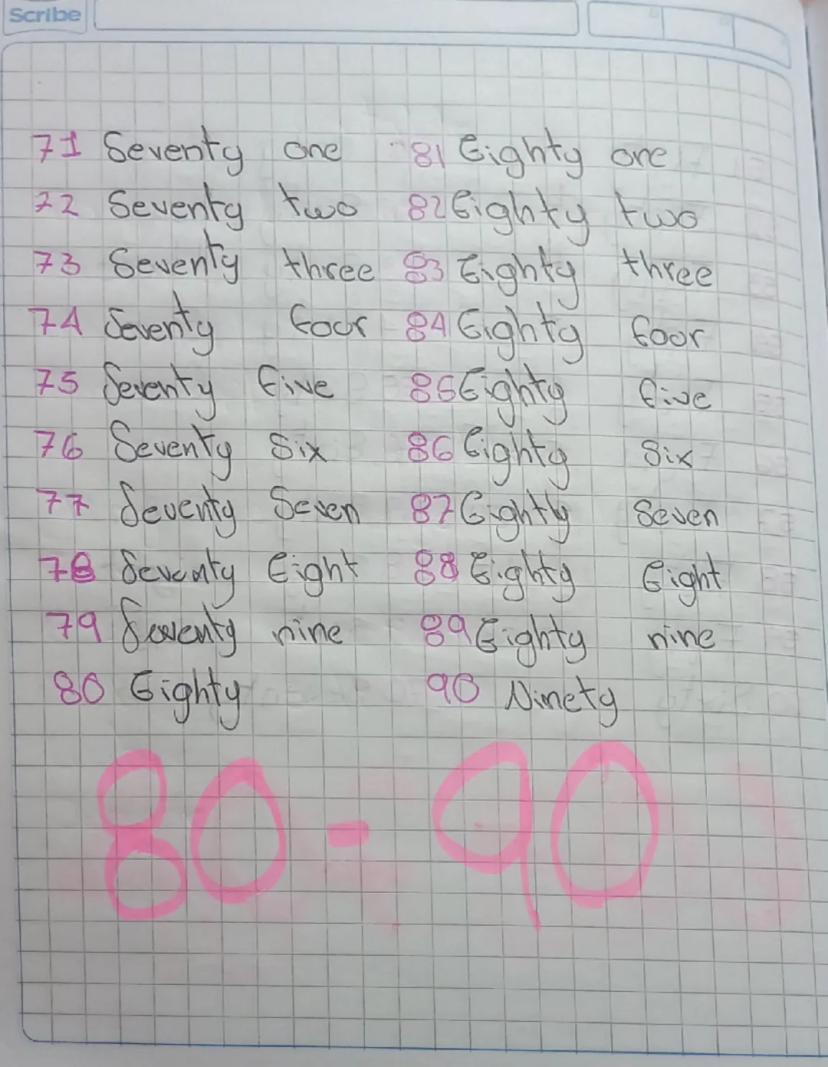 Scribe
71 Seventy one 81 Eighty one
72 Seventy two 82 Eighty two
73 Seventy three 83 Eighty three
74 Seventy foor 84 Eighty foor
75 Seventy five 86 Eighty five
76 Seventy Six 86 Eighty six
77 Seventy Seven 87 Eighty Seven
78 Seventy Eight 88 Eighty Eight
79 Seventy nine 89 Eighty nine
80 Eighty 90 Ninety
80 - 90